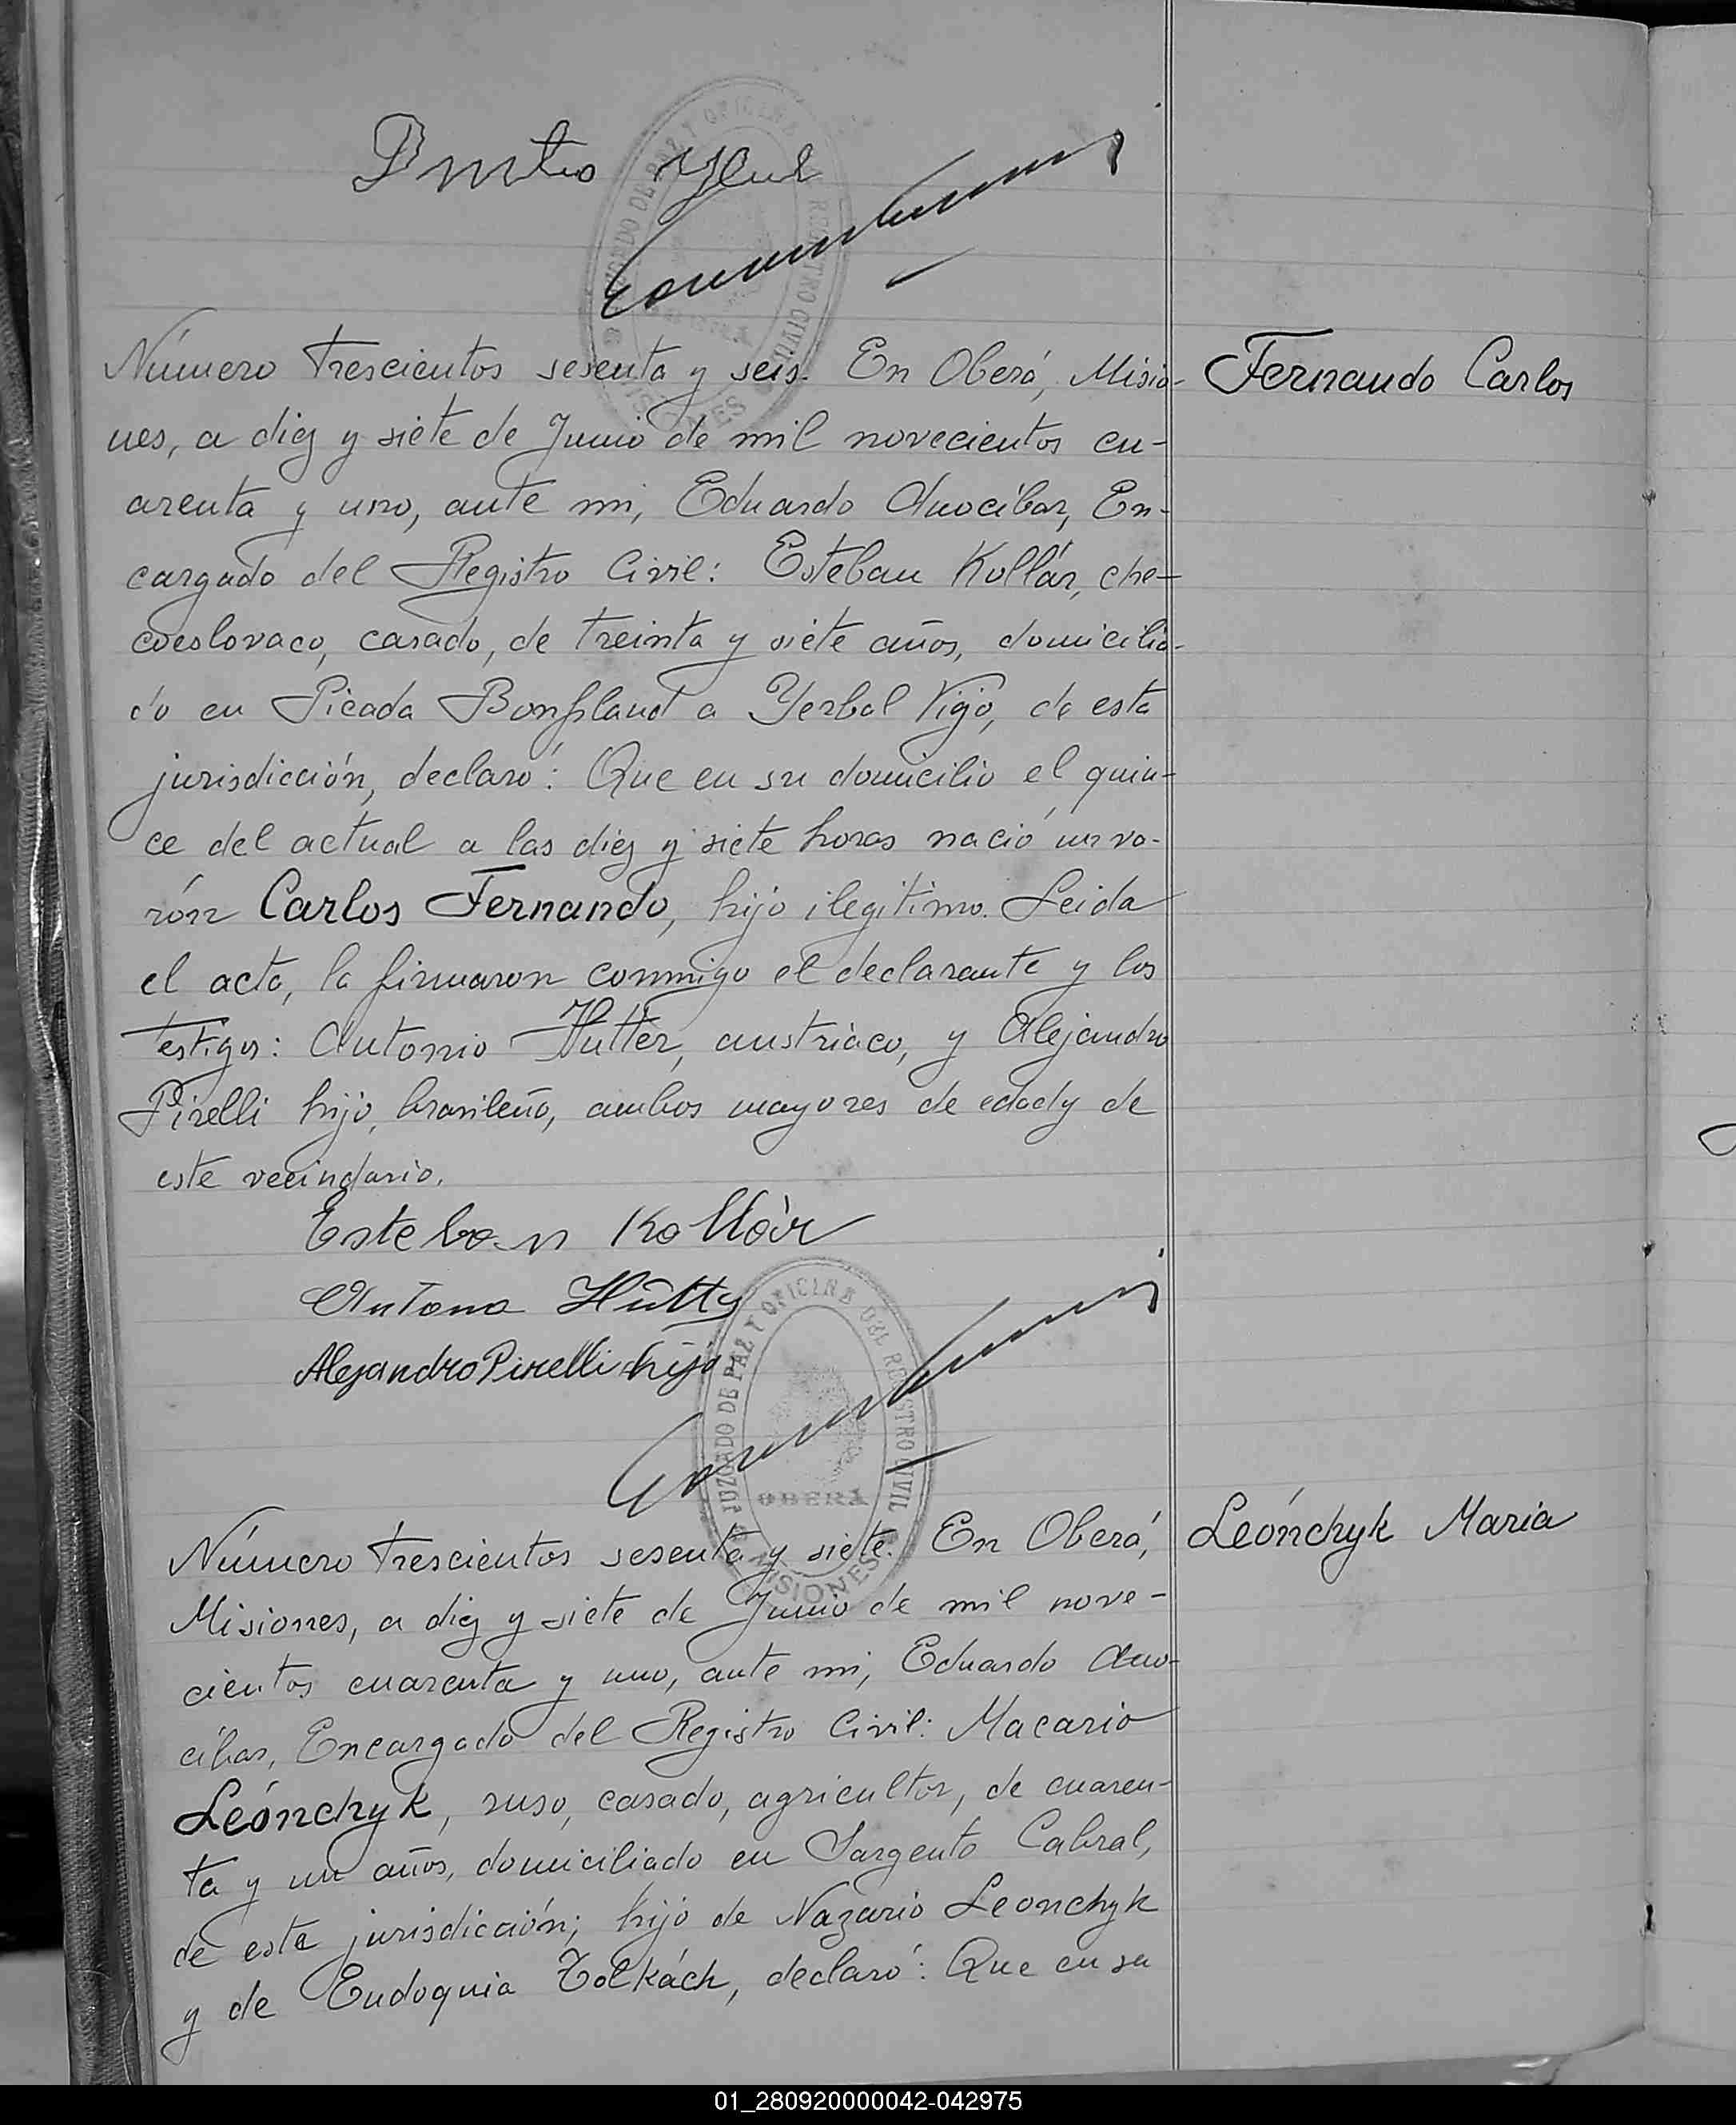 Número trescientos sesenta y seis. En Oberá, Misio-
Fernando Carlos
nes, a diez y siete de Junio de mil novecientos cu-
arenta y uno, ante mi, Eduardo Anocíbar, En-
cargado del Registro Civil: Esteban Kollár, che-
coeslovaco, casado, de treinta y siete años, domicilia-
do en Picada Bonpland a Yerbal Vigo, de esta
jurisdicción, declaró: Que en su domicilio el quin-
ce del actual a las diez y siete horas nació un va-
rón Carlos Fernando, hijo ilegitimo. Leida
el acta, la firmaron conmigo el declarante y los
testigos: Antonio Hutter, austriaco, y Alejandro
Pirelli hijo, brasileño, ambos mayores de edad y de
este vecindario.
Esteban Kollár
Antono
Alejandro Pirelli hijo
JUZGADO DE PAZ Y OFICINA DEL REGISTRO CIVIL
OBERÁ
MISIONES
Número trescientos sesenta y siete. En Oberá,
Leónchyk Maria
Misiones, a diez y siete de Junio de mil nove-
cientos cuarenta y uno, ante mi, Eduardo Ano-
cíbar, Encargado del Registro Civil: Macario
Leónchyk, ruso, casado, agricultor, de cuaren-
ta y un años, domiciliado en Sargento Cabral,
de esta jurisdicción; hijo de Nazario Leonchyk
y de Eudoquia Tolkách, declaró: Que en su
01_280920000042-042975